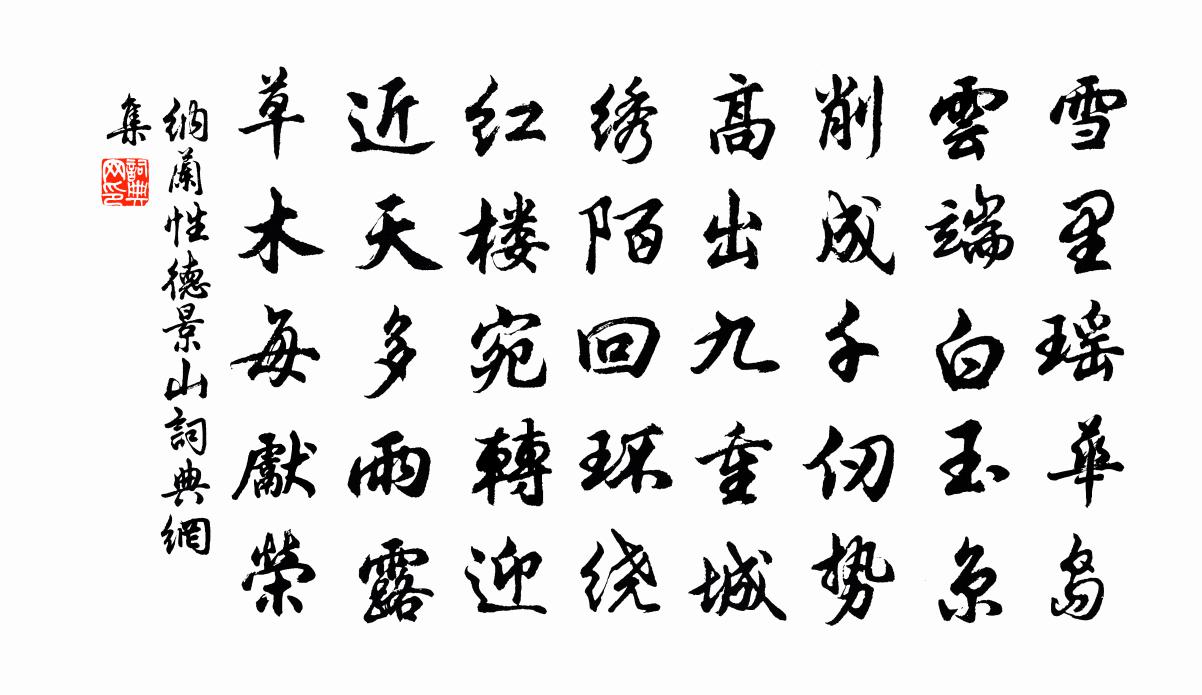 雪里瑶華岛
雲端白玉京
削成千仞势
高出九重城
绣陌回环绕
红楼宛轉迎
近天多雨露
草木每獻榮
纳蘭性德景山詞典網
集
詞典
网印